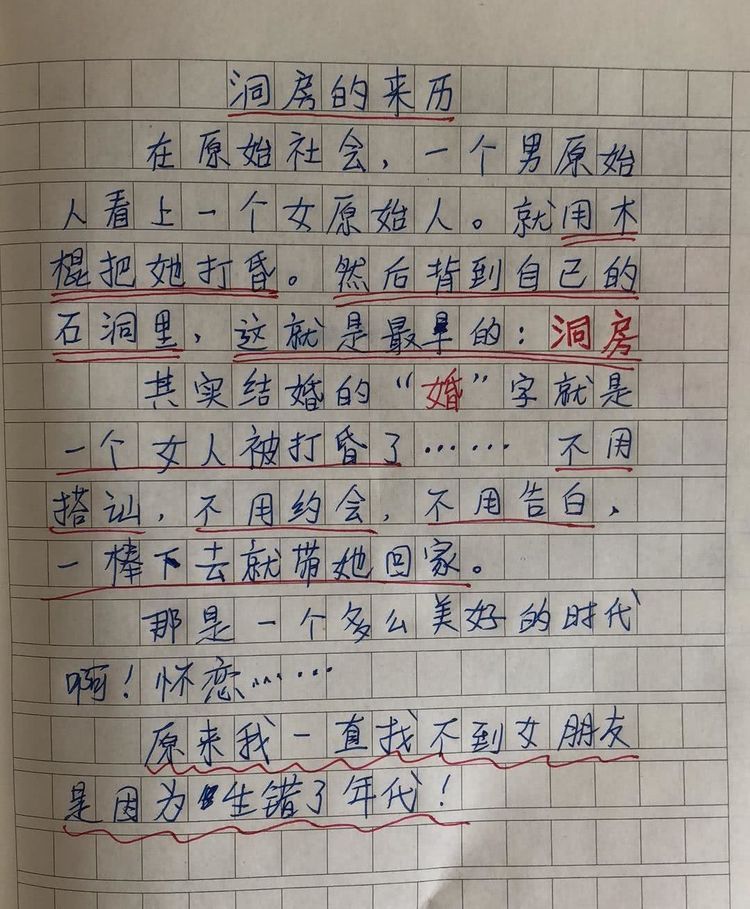 洞房的来历
在原始社会，一个男原始
人看上一个女原始人。就用木
棍把她打昏。然后背到自己的
石洞里，这就是最早的：洞房
其实结婚的“婚”字就是
一个女人被打昏了…… 不用
搭讪，不用约会，不用告白，
一棒下去就带她回家。
那是一个多么美好的时代
啊！怀恋……
原来我一直找不到女朋友
是因为生错了年代！